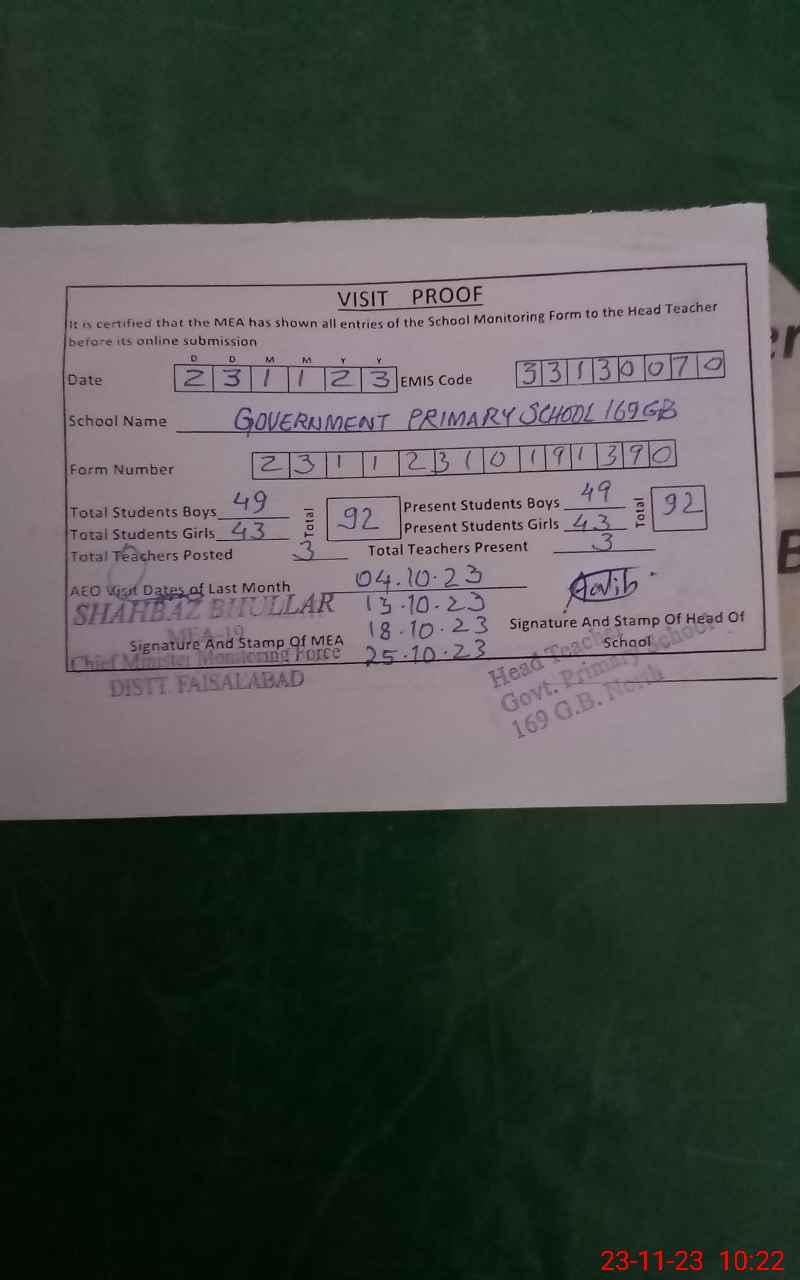 VISIT PROOF
It is certified that the MEA has shown all entries of the School Monitoring Form to the Head Teacher
before its online submission
D D M M Y Y
Date 2 3 1 1 2 3 EMIS Code 3 3 1 3 0 0 7 0
School Name GOVERNMENT PRIMARY SCHOOL 169 GB
Form Number 2 3 1 1 2 3 1 0 1 9 1 3 9 0
Total Students Boys 49 Total 92 Present Students Boys 49 Total 92
Total Students Girls 43 Present Students Girls 43
Total Teachers Posted 3 Total Teachers Present 3
AEO Visit Dates of Last Month 04.10.23
SHAHBAZ BHULLAR 13.10.23
MEA-19
18.10.23 Signature And Stamp Of Head Of
Signature And Stamp Of MEA School
Chief Minister Monitoring Force 25.10.23
DISTT. FAISALABAD
Head Teacher
Govt. Primary School
169 G.B. North
er
B
23-11-23 10:22